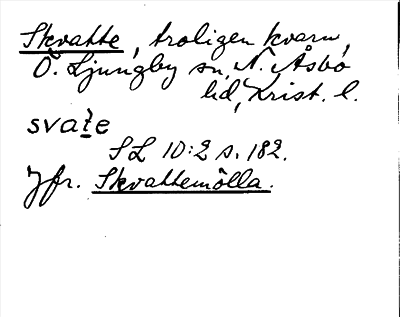 Skvatte, troligen kvarn,
Ö. Ljungby sn, N. Åsbo
hd, Krist. l.
svaṯe
SL 10:2 s. 182.
Jfr. Skvattemölla.